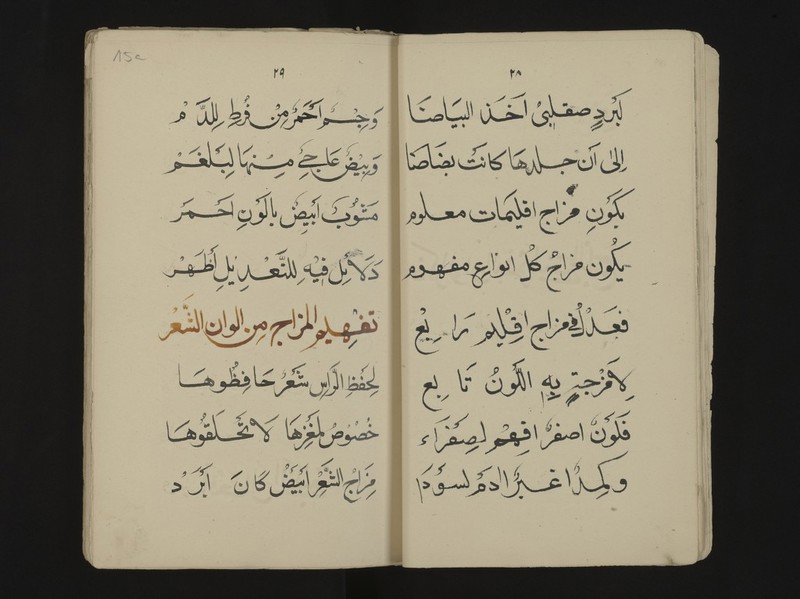 ٢٨
لبرد صقلبي اخذ البياضا
الى ان جلدها كانت بضاضا
بكون مزاج اقليمات معلوم
يكون مزاج كل انواع مفهوم
فعدل في مزاج اقليم رابع
لامزجة به اللون تابع
فلون اصفر افهم لصفراء
وكمدا اغبر ادم لسودا
٢٩
وجسم احمر من فرط للدم
وبيض عاجي منها لبلغم
مثوب ابيض بالون احمر
دلائل فيه للتعديل أظهر
تفهيم المزاج من الوان الشعر
لحفظ الراس شعر حافظوها
خصوص لمغزها لا تحلقوها
مزاج الشعر ابيض كان ابرد
15a